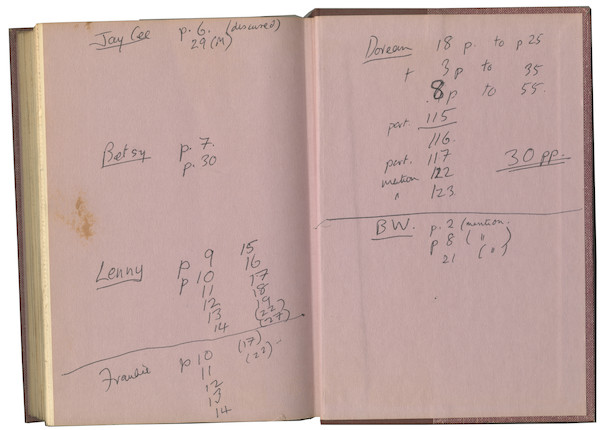 Jay Cee p. 6. (discussed)
29 (M)
Betsy p. 7.
p. 30
Lenny p 9 15
p 10 16
11 17
12 18
13 19
14 (22)
(27)
Frankie p 10 (17)
11 (22)
12
13
14
Doreen 18 p. to p 25
+ 3 p to 35
8 p to 55.
part. 115
116.
part. 117
mention 122
" 123
30 pp.
B W. p. 2 (mention.
p 8 ( " )
21 ( " )